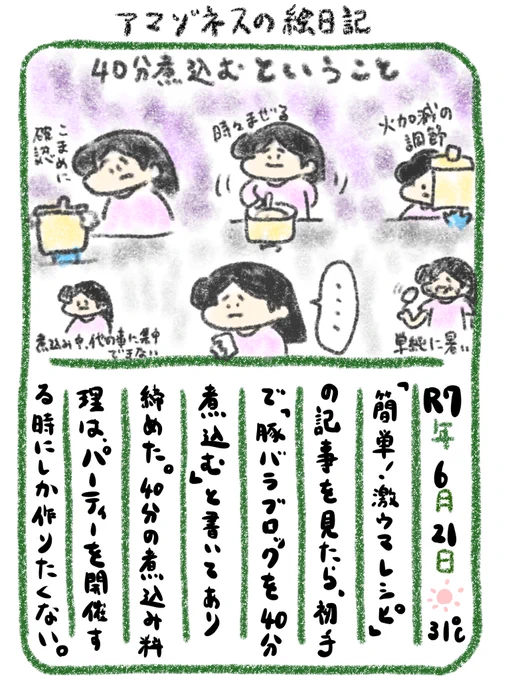 アマゾネスの絵日記
40分煮込むということ
火加減の
調節
時々まぜる
こまめに
確認
単純に暑い
・・・・
煮込み中、他の事に集中
できない
R7年6月21日 31℃
「簡単!激ウマレシピ」
の記事を見たら、初手
で「豚バラブロックを40分
煮込む」と書いてあり
締めた。40分の煮込み料
理は、パーティーを開催す
る時にしか作りたくない。